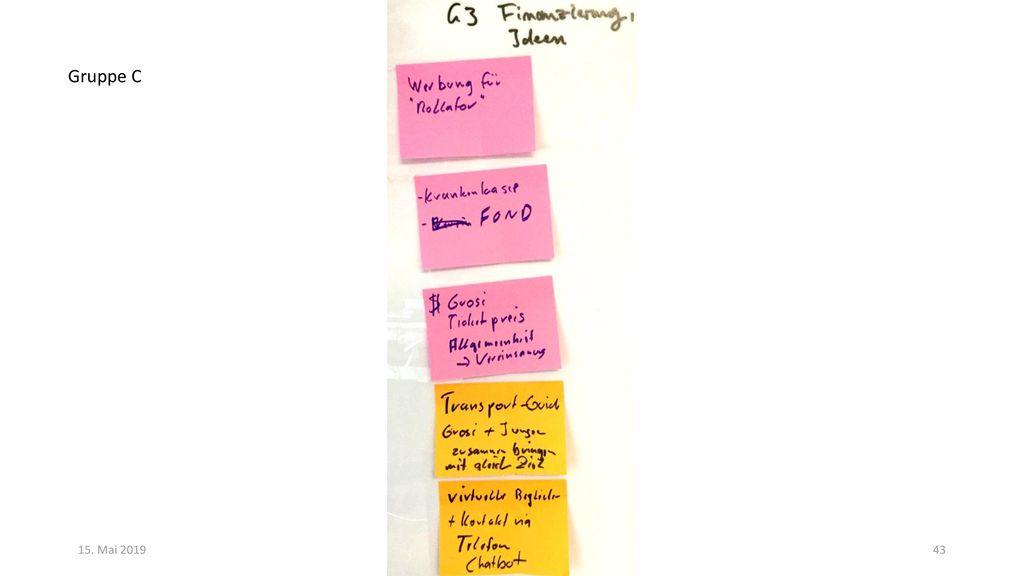 G3 Finanzierung,
Ideen
Gruppe C
Werbung für
"Rollator"
- Krankenkasse
- FOND
$ Grosi
Ticketpreis
Allgemeinheit
→ Vereinsamung
Transport-Guide
Grosi + Jungen
zusammen bringen
mit gleich Ziel
virtuelle Begleiter
+ Kontakt via
Telefon
Chatbot
15. Mai 2019
43